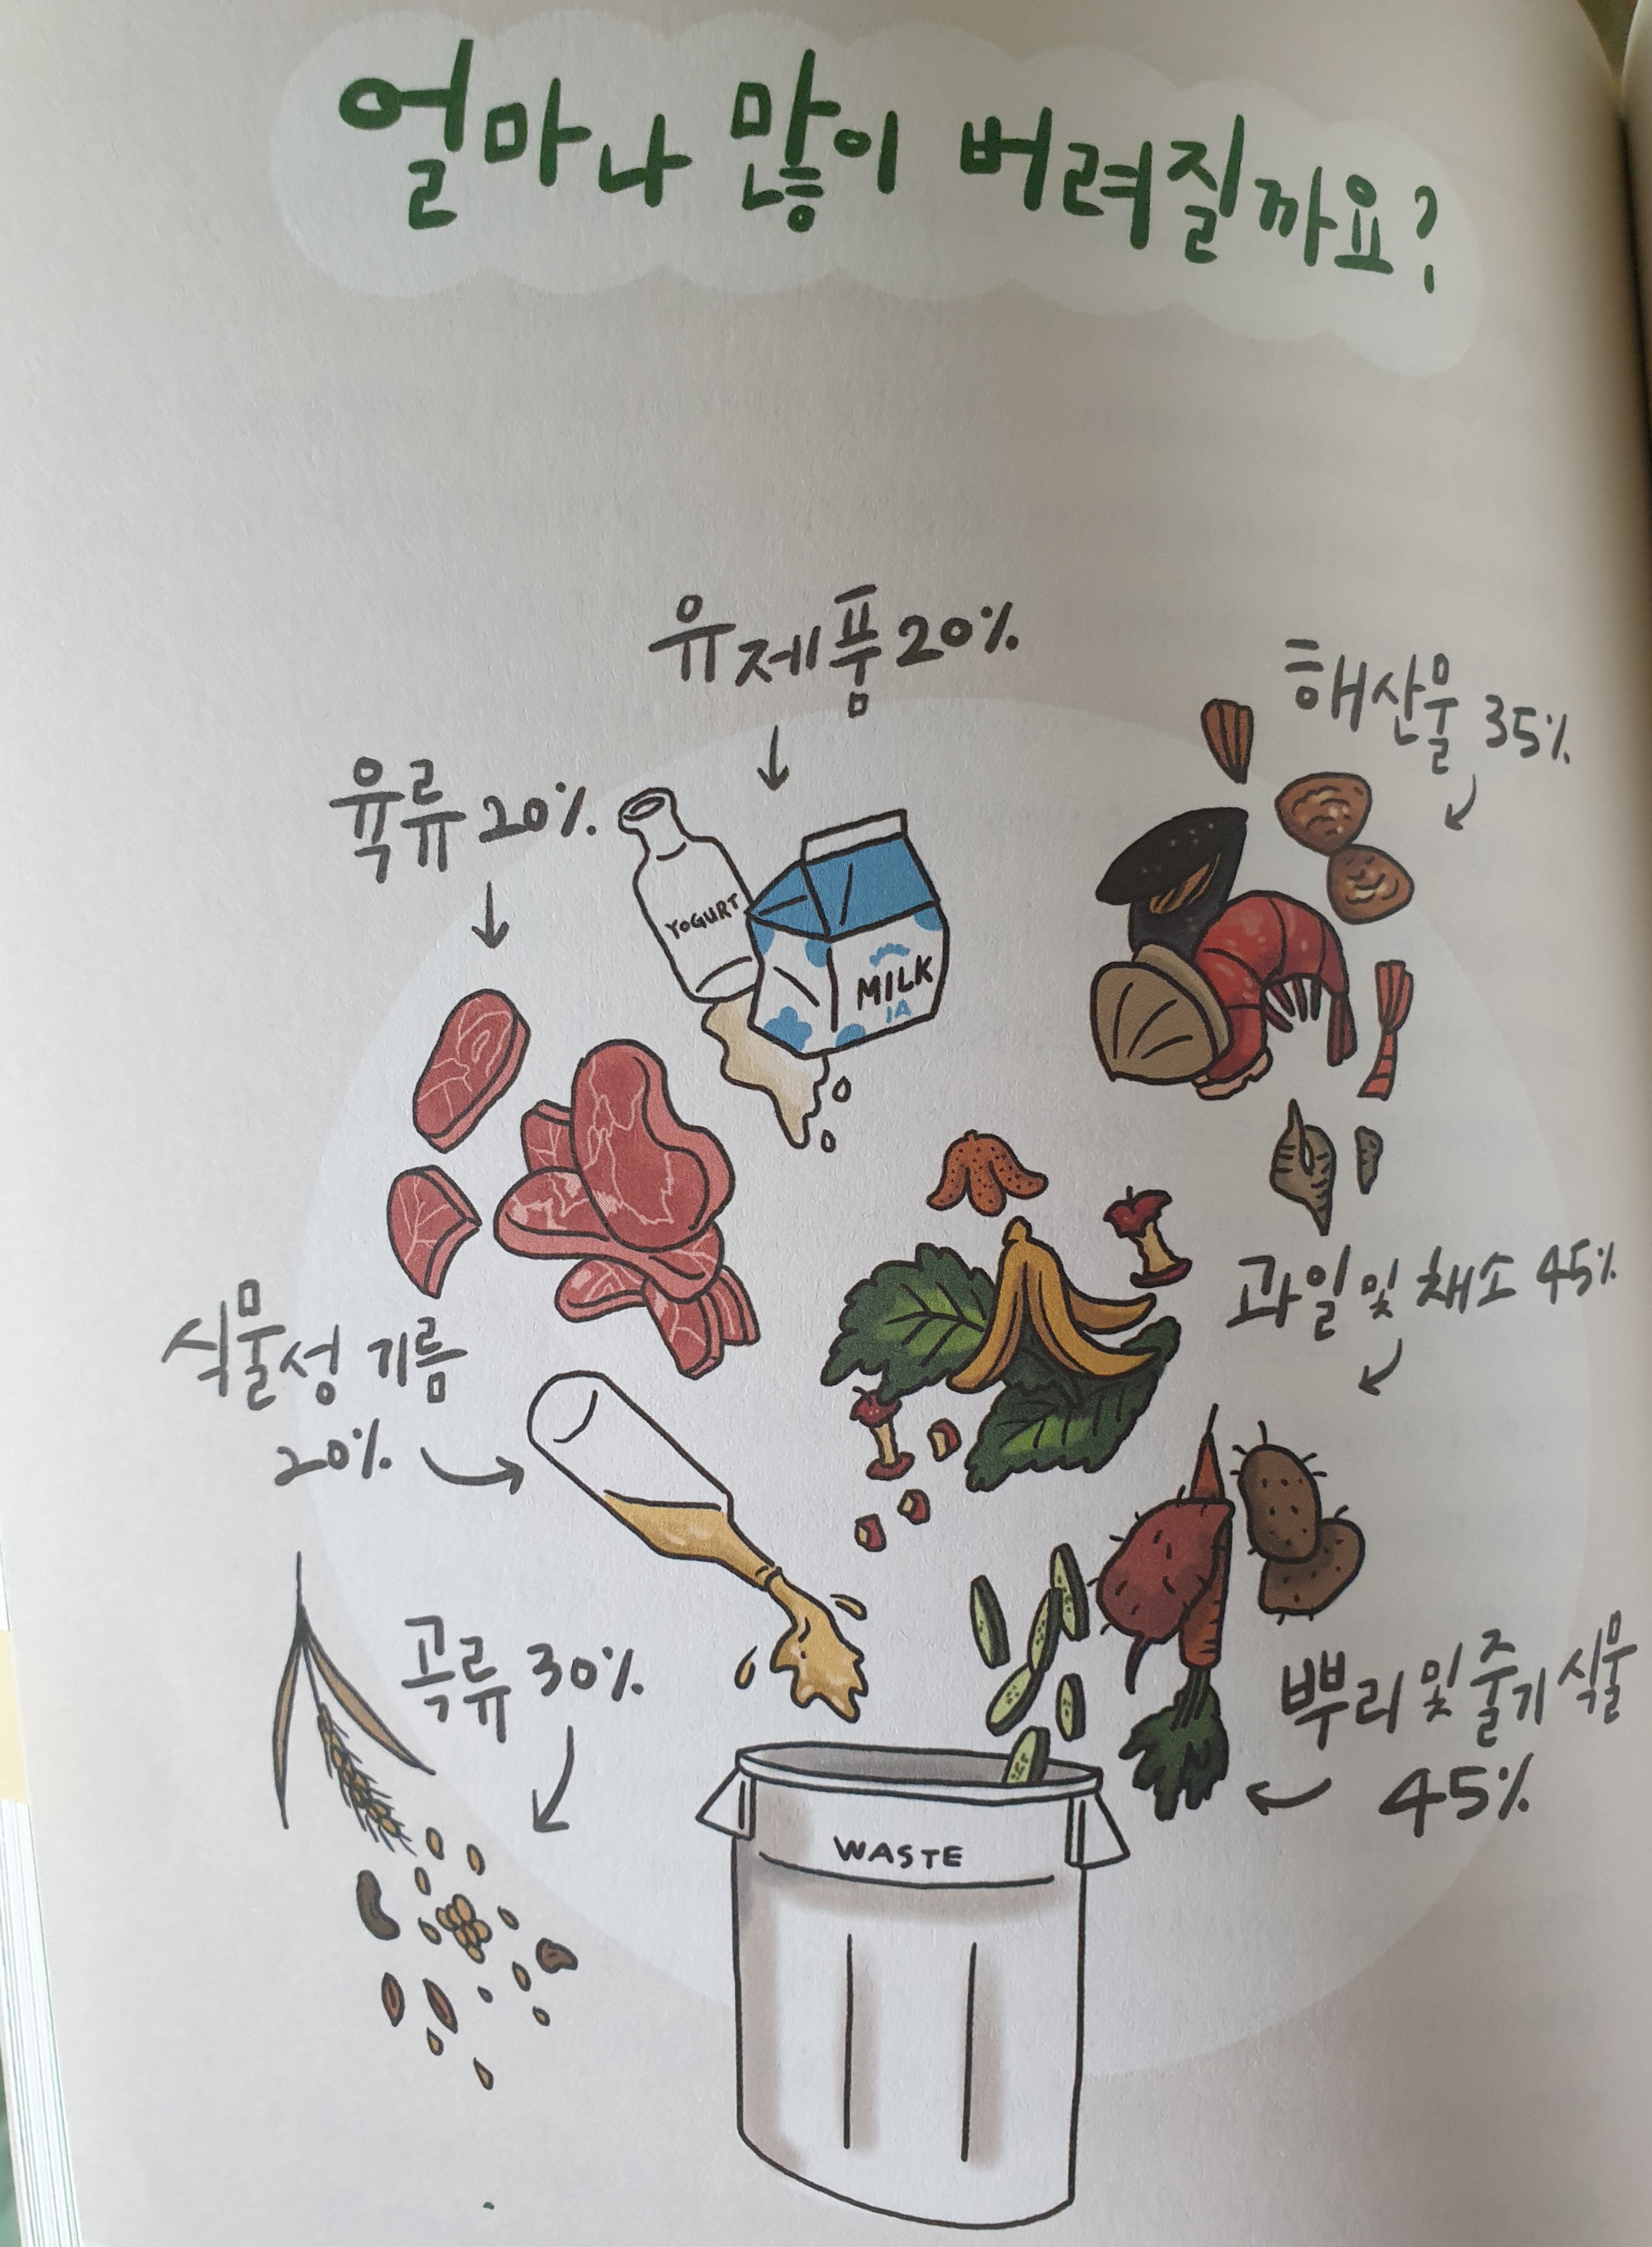 얼마나 많이 버려질까요?
유제품 20%
해산물 35%
육류 20%
YOGURT
MILK
1A
과일 및 채소 45%
식물성 기름
20%
곡류 30%
뿌리 및 줄기 식물
45%
WASTE